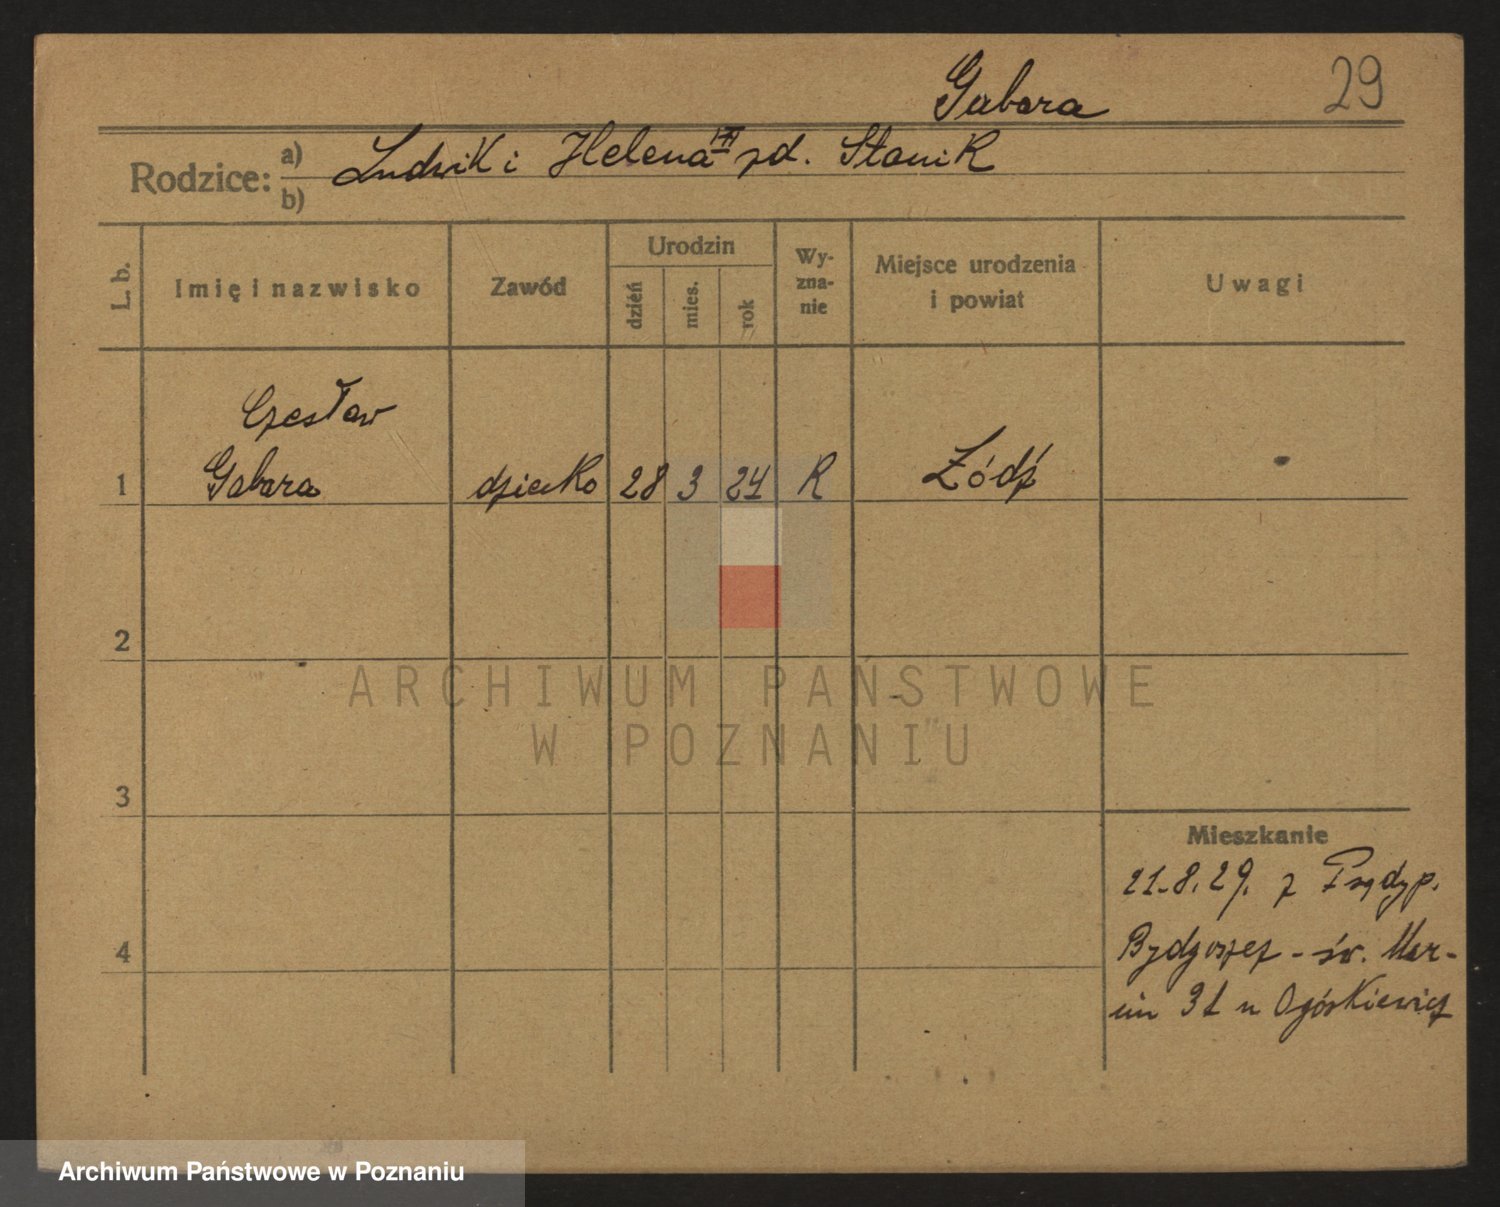 Gabara 29
Rodzice: a) Ludwik i Helena zd. Stanik
b)
L. b. Imię i nazwisko Zawód Urodzin dzień mies. rok Wyznanie Miejsce urodzenia i powiat Uwagi
Czesław
1 Gabara dziecko 28 3 24 R Łódź
2
ARCHIWUM PAŃSTWOWE
W POZNANIU
3
Mieszkanie
21.8.29. z
4 Bydgoszcz - św. Mar-
cin 31 u Ogórkiewicz
Archiwum Państwowe w Poznaniu